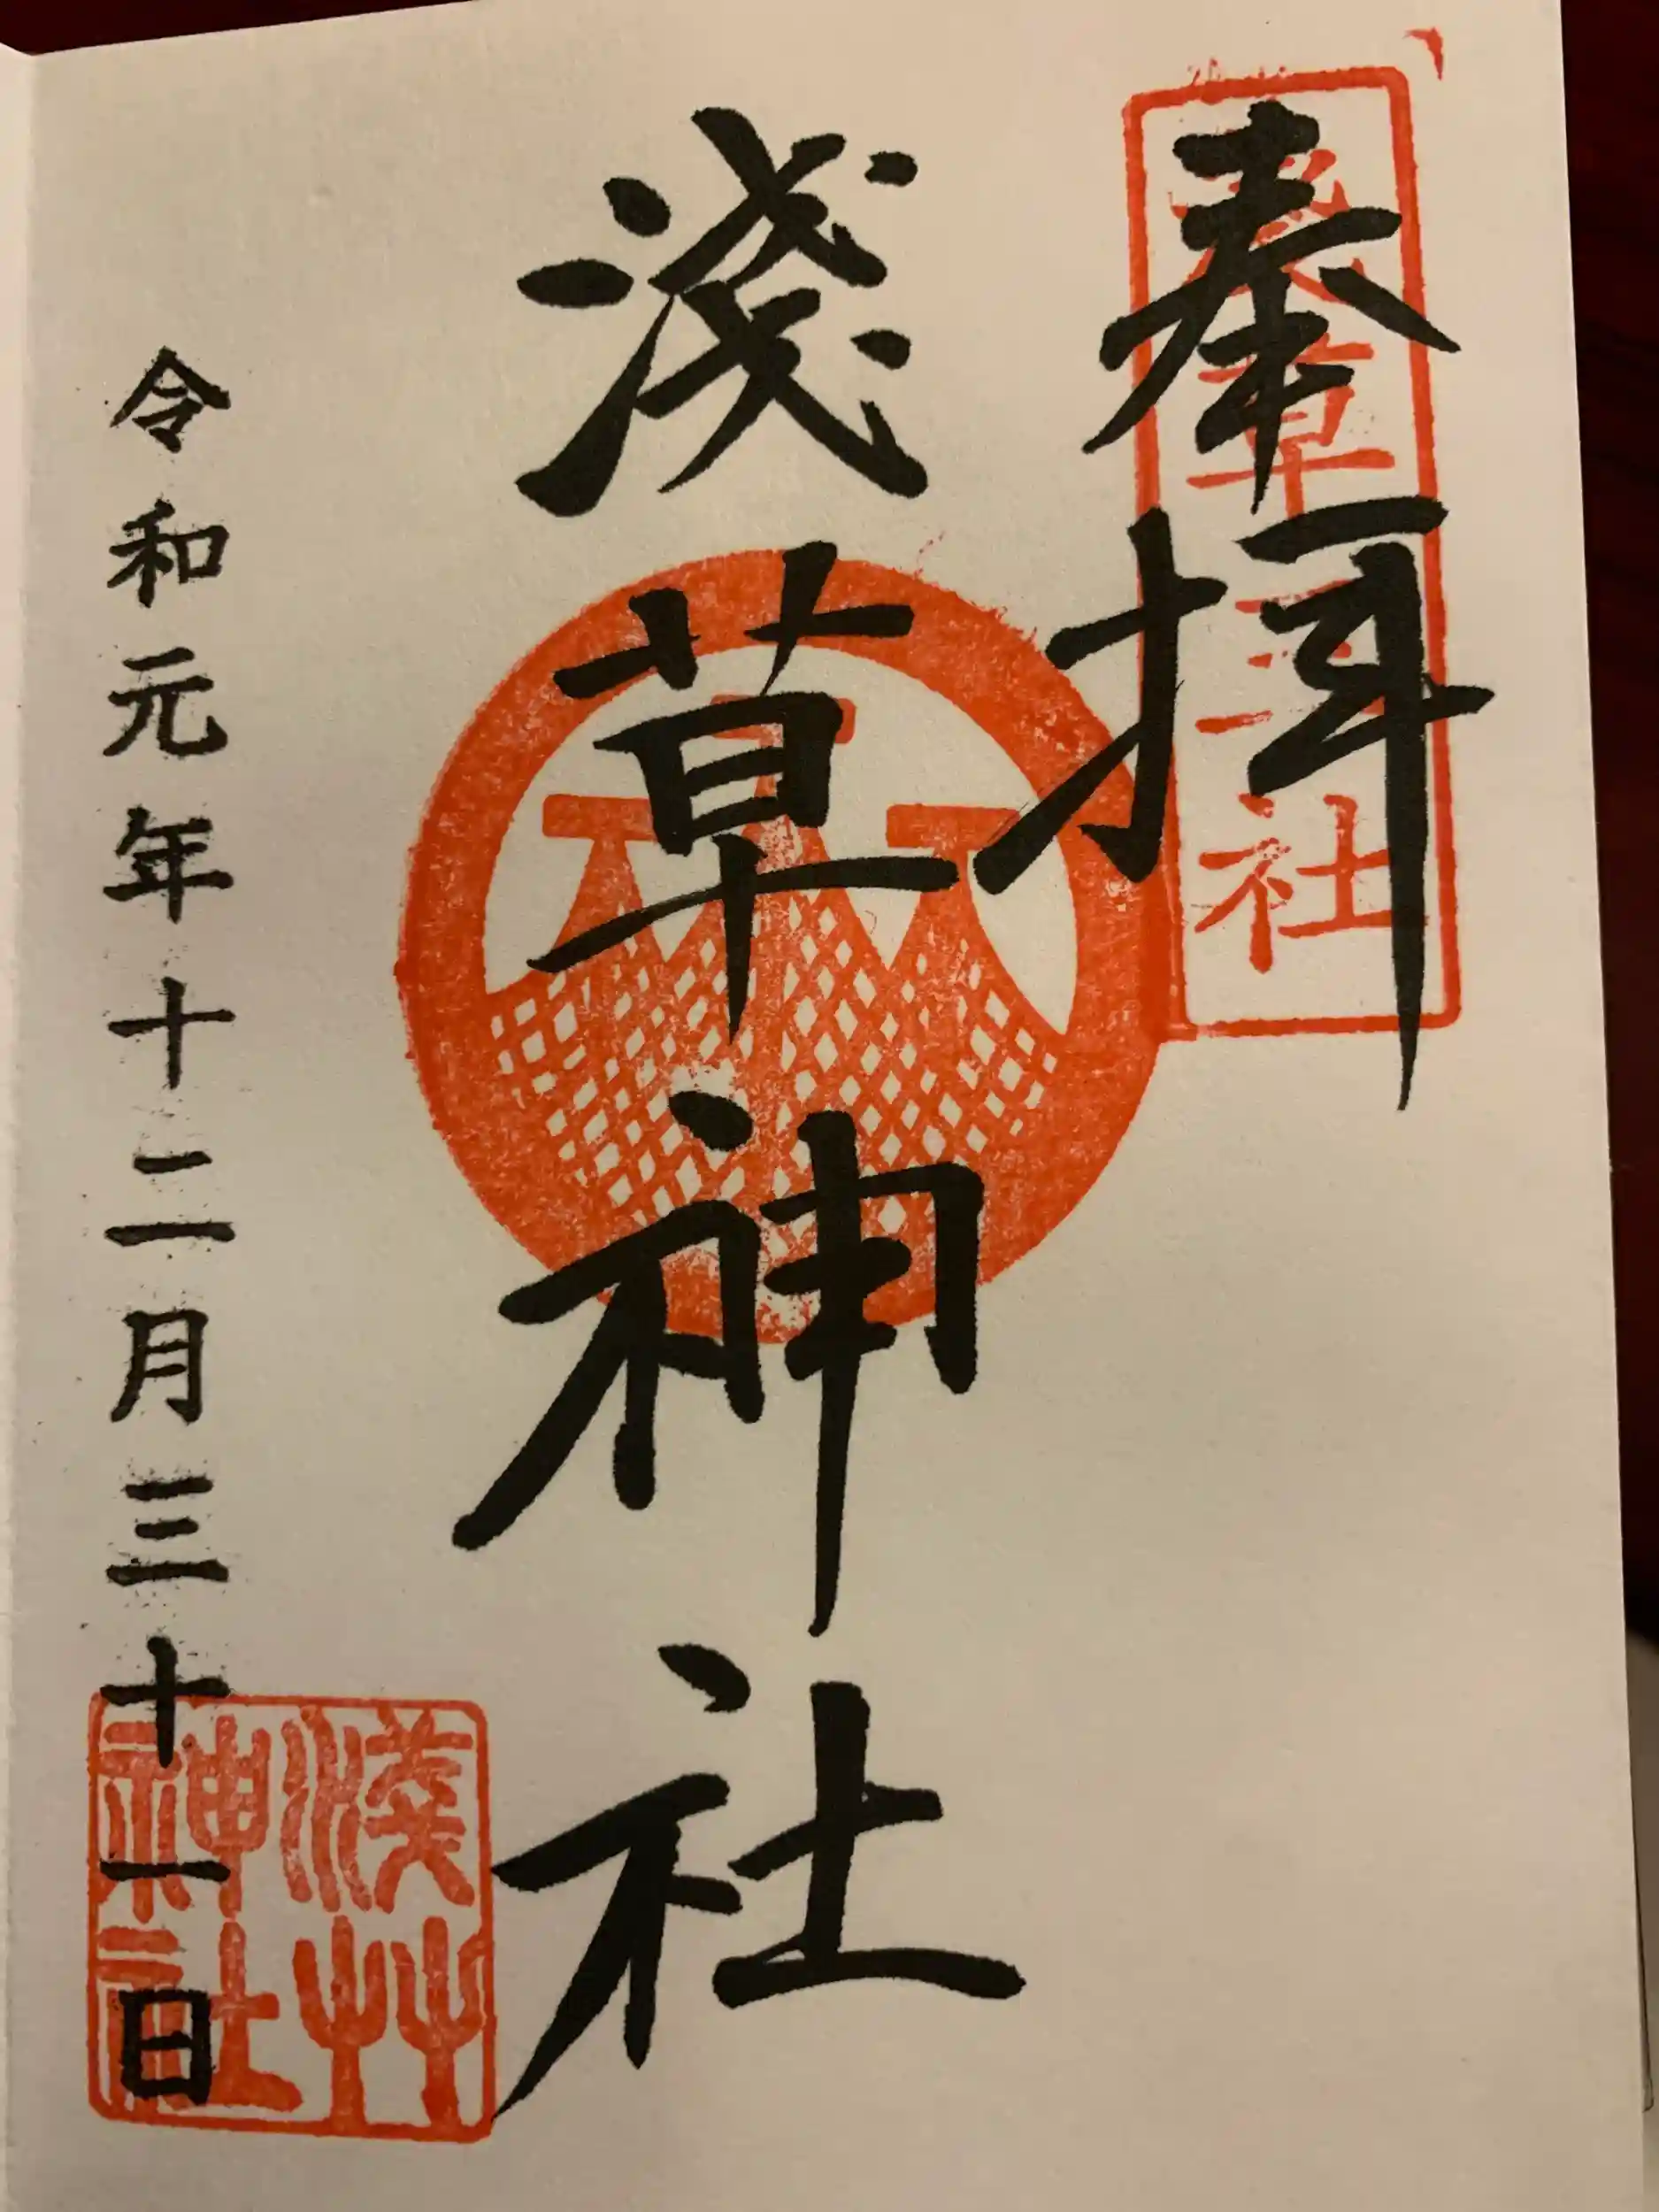 奉拝
浅草三社
淺草神社
令和元年十二月三十一日
淺艸
神社